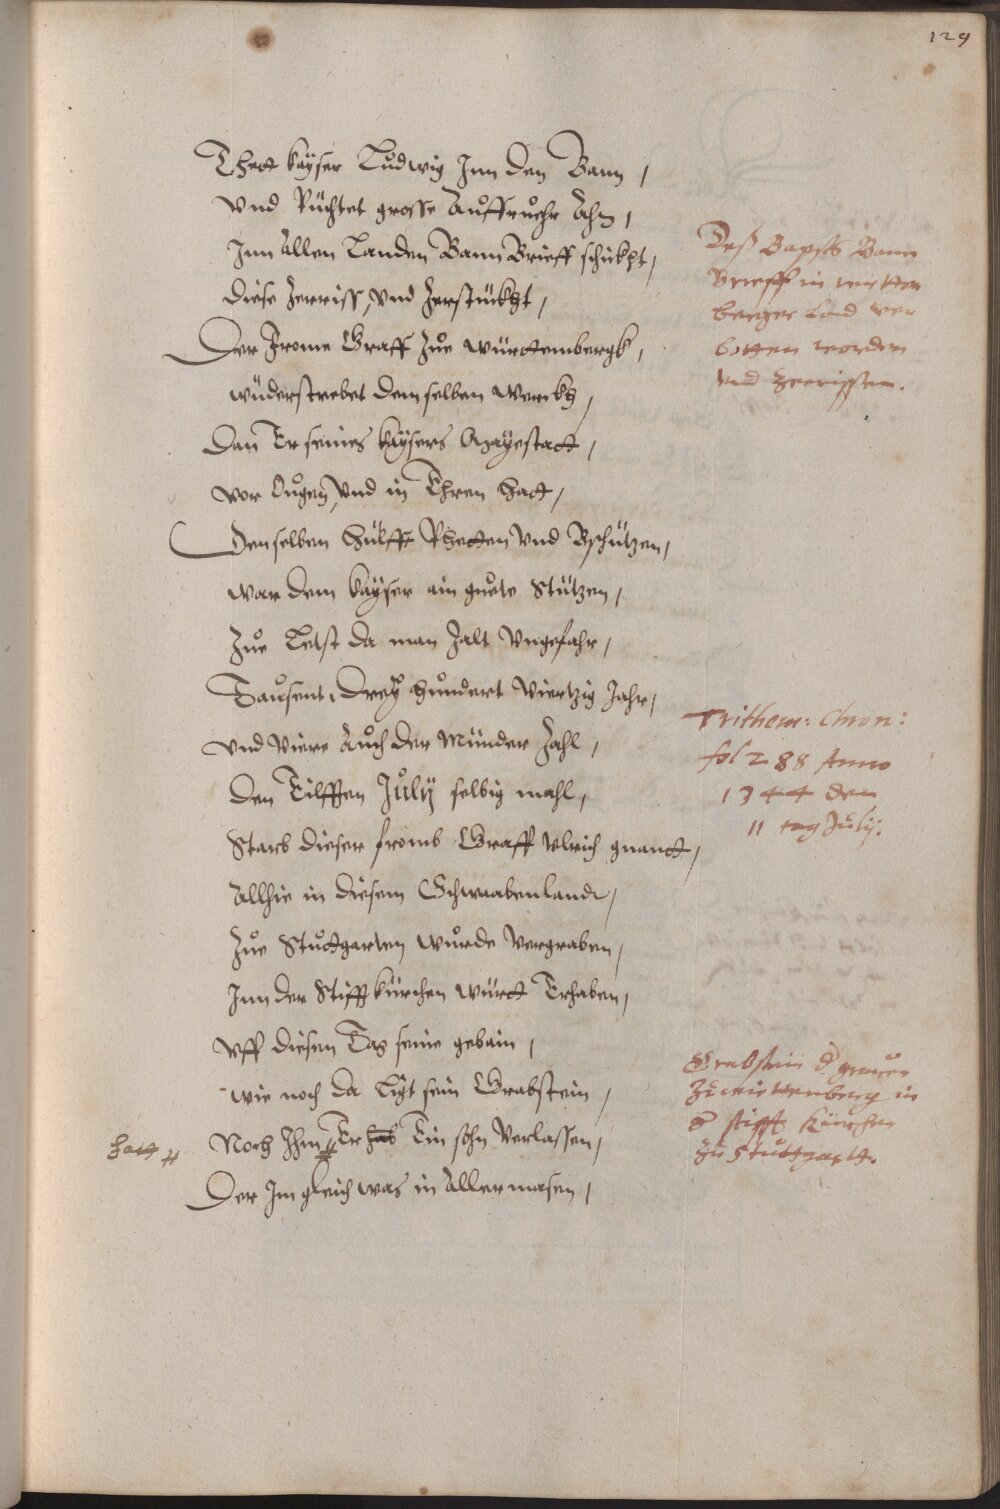 129
Thett kayser Ludwig Inn den Bann,
Vnd Rüchtet grosse Auffruehr Ahn,
Inn Allen Landen Bann Brieff schickht,
diese zerriss, Vnd zerstückht,
Der Frome Graff Zue Württembergk,
wüderstrebet demselben Werckh,
Dan Er seines kaysers Mayestatt,
vor Augen, Vnd in Ehren hatt,
Denselben hülfft Rhetten Vnd Bschützen,
war dem kayser ain guete Stützen,
Zue Letst da man Zalt Vngefahr,
Tausent, Drey hundert Viertzig Jahr,
vnd Viere Auch der Münder Zahl,
den Eilfften July selbig mahl,
Starb dieser fromb Graff Vlrich gnantt,
Allhie in diesem Schwaabenlandt,
Zue Stuttgarten wurde Vergraben,
Inn der Stifft kürchen württ Erhaben,
vff diesen Tag seine gebain,
wie noch da Ligt sein Grabstein,
Noch Ihm Er hab Ein sohn Verlassen,
Der Im gleich was in Aller masen,
Deß Bapsts Bann
Brieff in wirtten
berger Land ver
botten worden
vnd zerrissen.
Trithem: Chron:
fol 288 Anno
1344 den
11 tag July.
Grabstein d graven
Zu wirttenberg in
d stifft kürchen
Zu Stuttgartt.
hatt